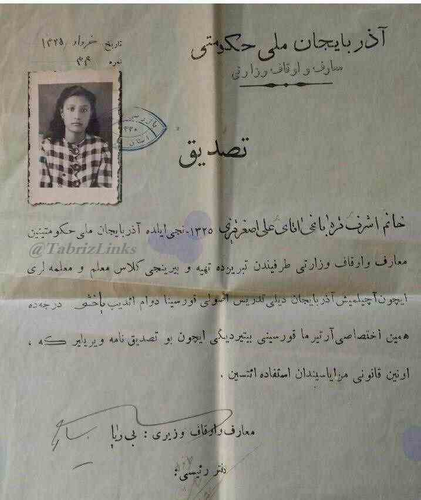 آذربایجان ملی حکومتی
معارف و اوقاف وزارتی
تاریخ خرداد ۱۳۲۵
نمره
تصدیق
خانم اشرف قره باغی آقای علی اصغر ۱۳۲۵-نجی ایلده آذربایجان ملی حکومتینین
@TabrizLinks
معارف و اوقاف وزارتی طرفیندن تبریزده تهیه و بیرینجی کلاس معلم و معلمه لری
ایچون آچیلمیش آذربایجان دیلی تدریس اصولی قورسینا دوام ائدیب یاخشی درجه ده
همین اختصاصی آرتیرما قورسینی بیتیردیگی ایچون بو تصدیق نامه ویریلیر که ،
اونین قانونی مزایاسیندان استفاده ائتسین .
معارف و اوقاف وزیری : بی ریا
دفتر رئیسی :